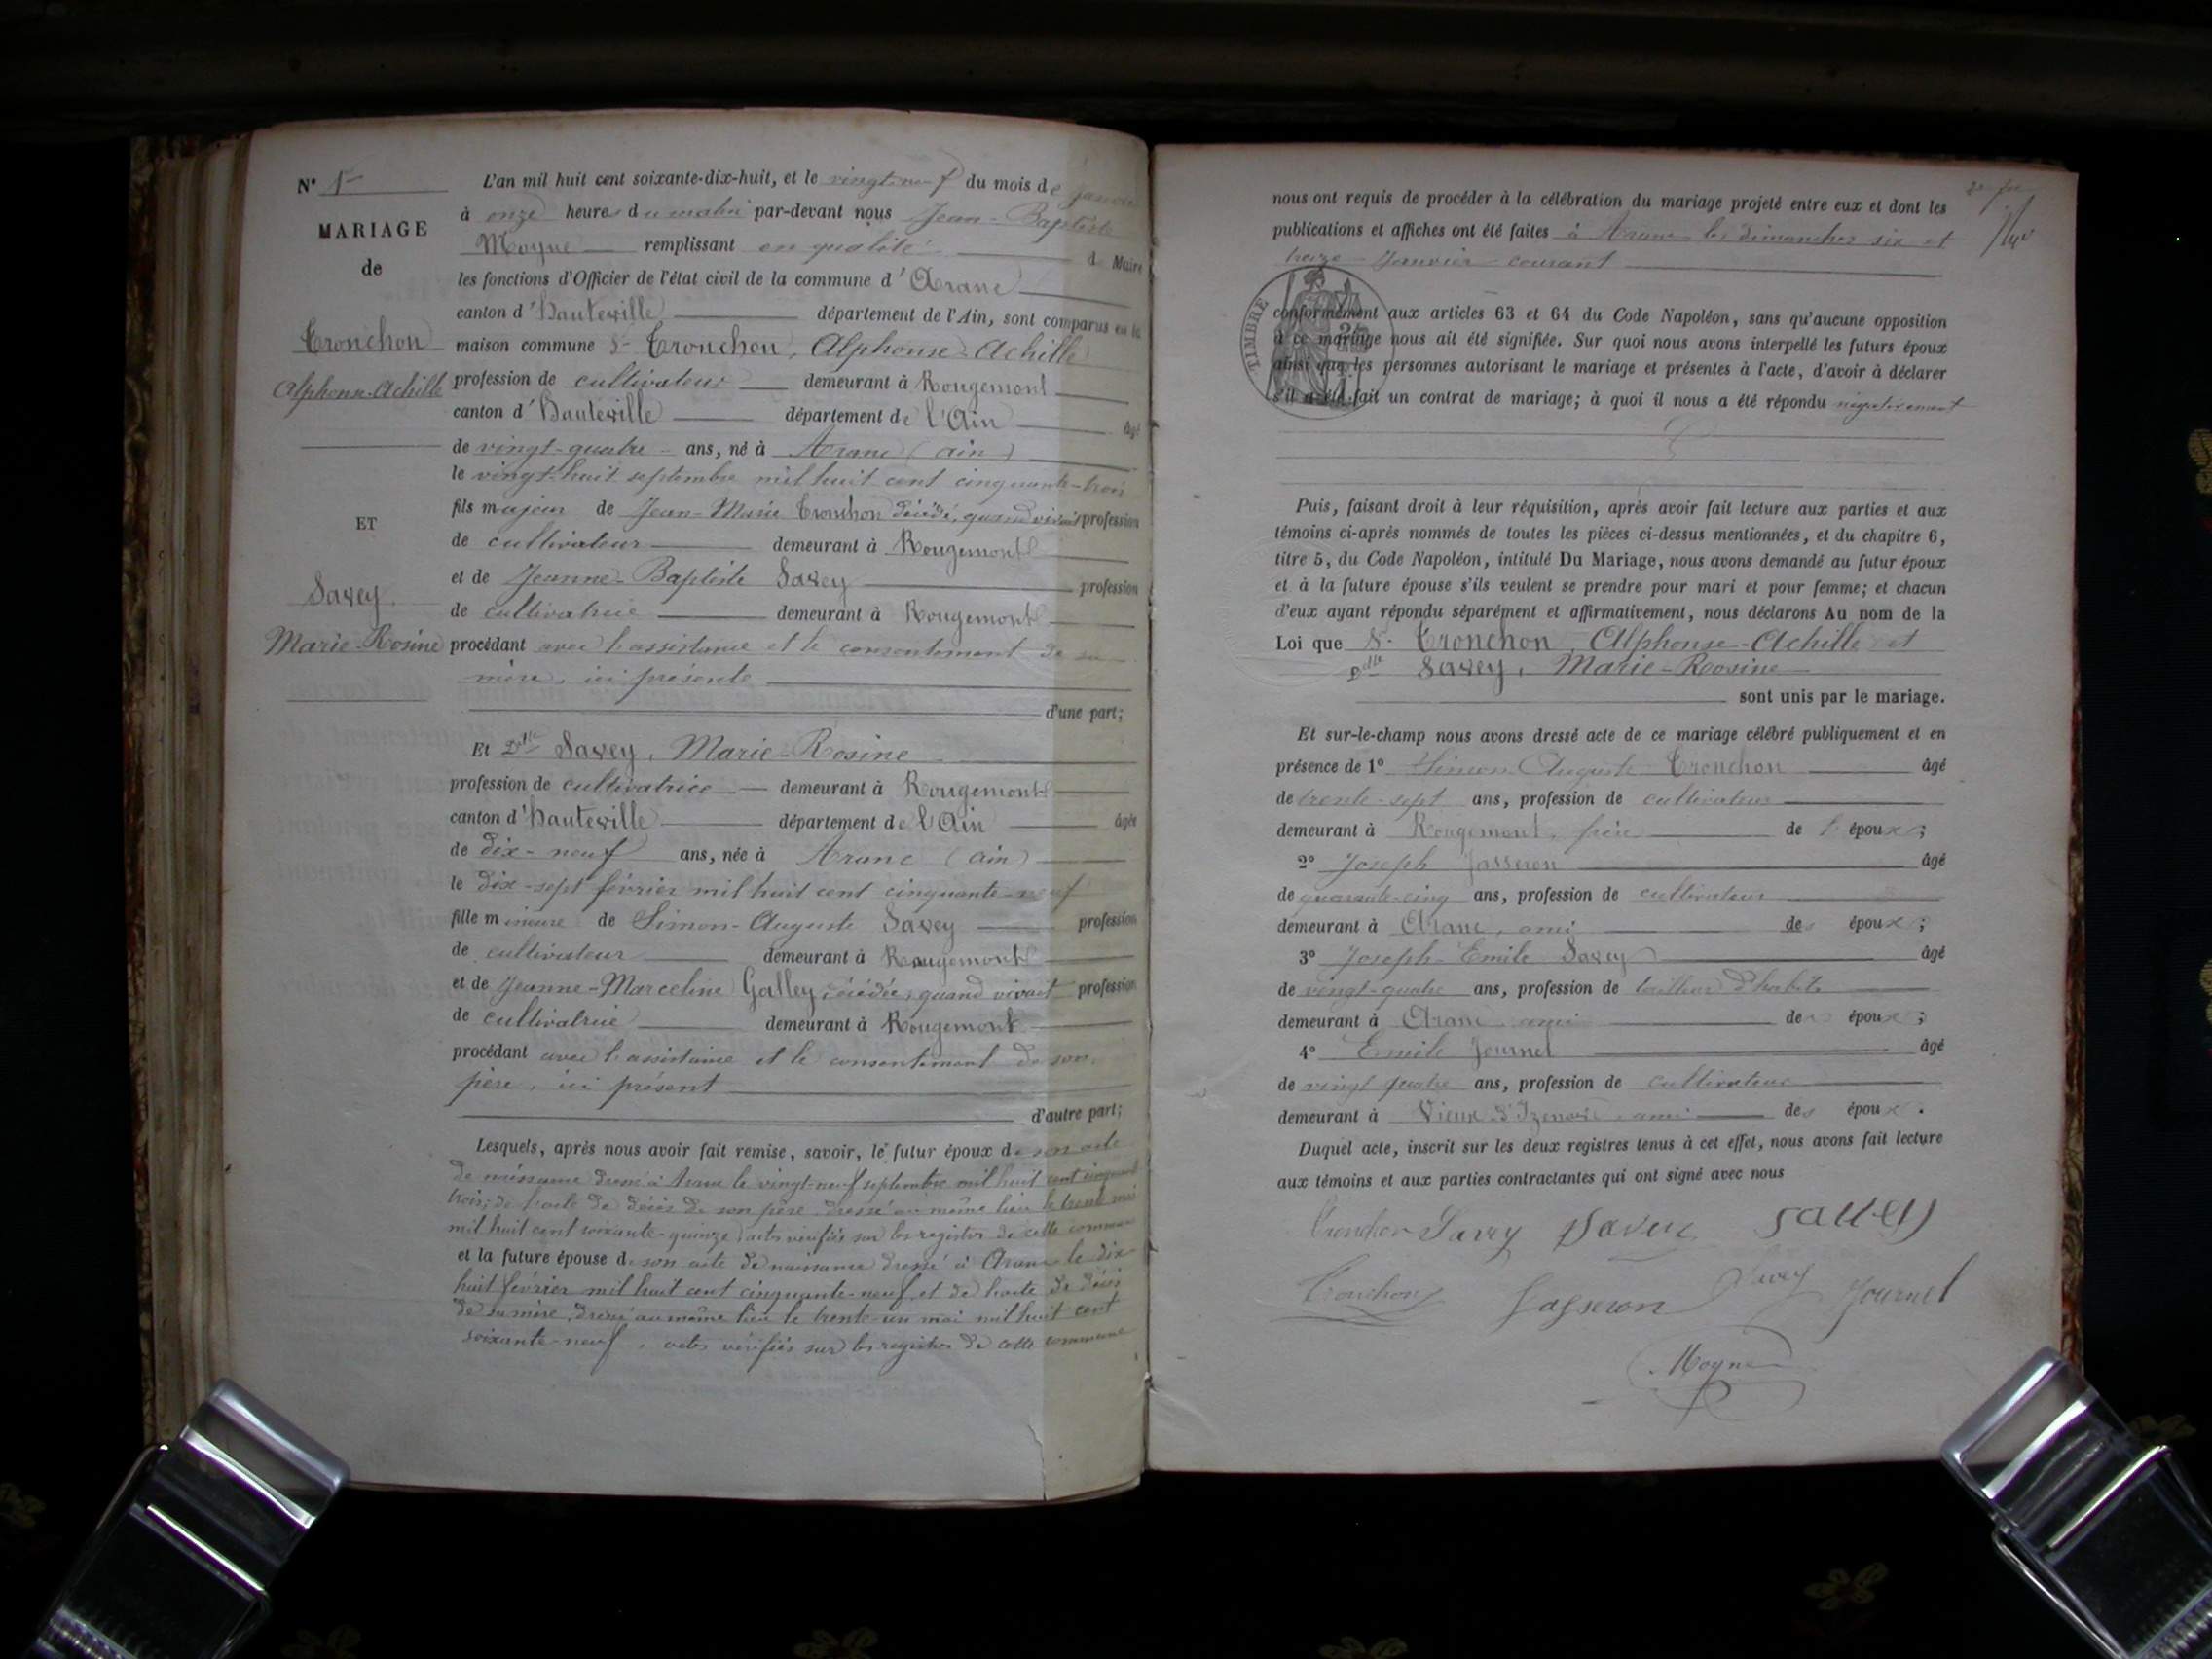 N° 1
MARIAGE
de
Tronchon
Alphonse-Achille
ET
Savey
Marie-Rosine
L'an mil huit cent soixante-dix-huit, et le vingt-neuf du mois de janvier
à onze heures du matin par-devant nous Jean-Baptiste
Moyne remplissant en qualité de Maire
les fonctions d'Officier de l'état civil de la commune d'Aranc
canton d'Hauteville département de l'Ain, sont comparus en la
maison commune Sr Tronchon, Alphonse-Achille
profession de cultivateur demeurant à Rougemont
canton d'Hauteville département de l'Ain âgé
de vingt-quatre ans, né à Aranc (Ain)
le vingt-huit septembre mil huit cent cinquante-trois
fils majeur de Jean-Marie Tronchon décédé, quand vivait profession
de cultivateur demeurant à Rougemont
et de Jeanne-Baptiste Savey profession
de cultivatrice demeurant à Rougemont
procédant avec l'assistance et le consentement de sa
mère, ici présente
d'une part;
Et Dlle Savey, Marie-Rosine
profession de cultivatrice demeurant à Rougemont
canton d'Hauteville département de l'Ain âgée
de dix-neuf ans, née à Aranc (Ain)
le dix-sept février mil huit cent cinquante-neuf
fille mineure de Simon-Auguste Savey profession
de cultivateur demeurant à Rougemont
et de Jeanne-Marceline Galley, décédée, quand vivait profession
de cultivatrice demeurant à Rougemont
procédant avec l'assistance et le consentement de son
père, ici présent
d'autre part;
Lesquels, après nous avoir fait remise, savoir, le futur époux de son acte
de naissance dressé à Aranc le vingt-neuf septembre mil huit cent cinquante
trois; de l'acte de décès de son père dressé au même lieu le trente mai
mil huit cent soixante-quinze, actes vérifiés sur les registres de cette commune
et la future épouse de son acte de naissance dressé à Aranc le dix
huit février mil huit cent cinquante-neuf et de l'acte de décès
de sa mère, dressé au même lieu le trente-un mai mil huit cent
soixante-neuf, actes vérifiés sur les registres de cette commune
nous ont requis de procéder à la célébration du mariage projeté entre eux et dont les
publications et affiches ont été faites à Aranc les dimanches six et
treize janvier courant
TIMBRE
conformément aux articles 63 et 64 du Code Napoléon, sans qu'aucune opposition
à ce mariage nous ait été signifiée. Sur quoi nous avons interpellé les futurs époux
ainsi que les personnes autorisant le mariage et présentes à l'acte, d'avoir à déclarer
s'il a été fait un contrat de mariage; à quoi il nous a été répondu négativement
Puis, faisant droit à leur réquisition, après avoir fait lecture aux parties et aux
témoins ci-après nommés de toutes les pièces ci-dessus mentionnées, et du chapitre 6,
titre 5, du Code Napoléon, intitulé Du Mariage, nous avons demandé au futur époux
et à la future épouse s'ils veulent se prendre pour mari et pour femme; et chacun
d'eux ayant répondu séparément et affirmativement, nous déclarons Au nom de la
Loi que Sr Tronchon, Alphonse-Achille et
Dlle Savey, Marie-Rosine
sont unis par le mariage.
Et sur-le-champ nous avons dressé acte de ce mariage célébré publiquement et en
présence de 1° Simon Auguste Tronchon âgé
de trente-sept ans, profession de cultivateur
demeurant à Rougemont, frère de l'époux;
2° Joseph Jasseron âgé
de quarante-cinq ans, profession de cultivateur
demeurant à Aranc, ami des époux;
3° Joseph-Emile Savey âgé
de vingt-quatre ans, profession de tailleur d'habits
demeurant à Aranc ami des époux;
4° Emile Journel âgé
de vingt quatre ans, profession de cultivateur
demeurant à Vieux-d'Izenave, ami des époux.
Duquel acte, inscrit sur les deux registres tenus à cet effet, nous avons fait lecture
aux témoins et aux parties contractantes qui ont signé avec nous
Tronchon Savey Savey Savey
Tronchon Jasseron Savey Journel
Moyne